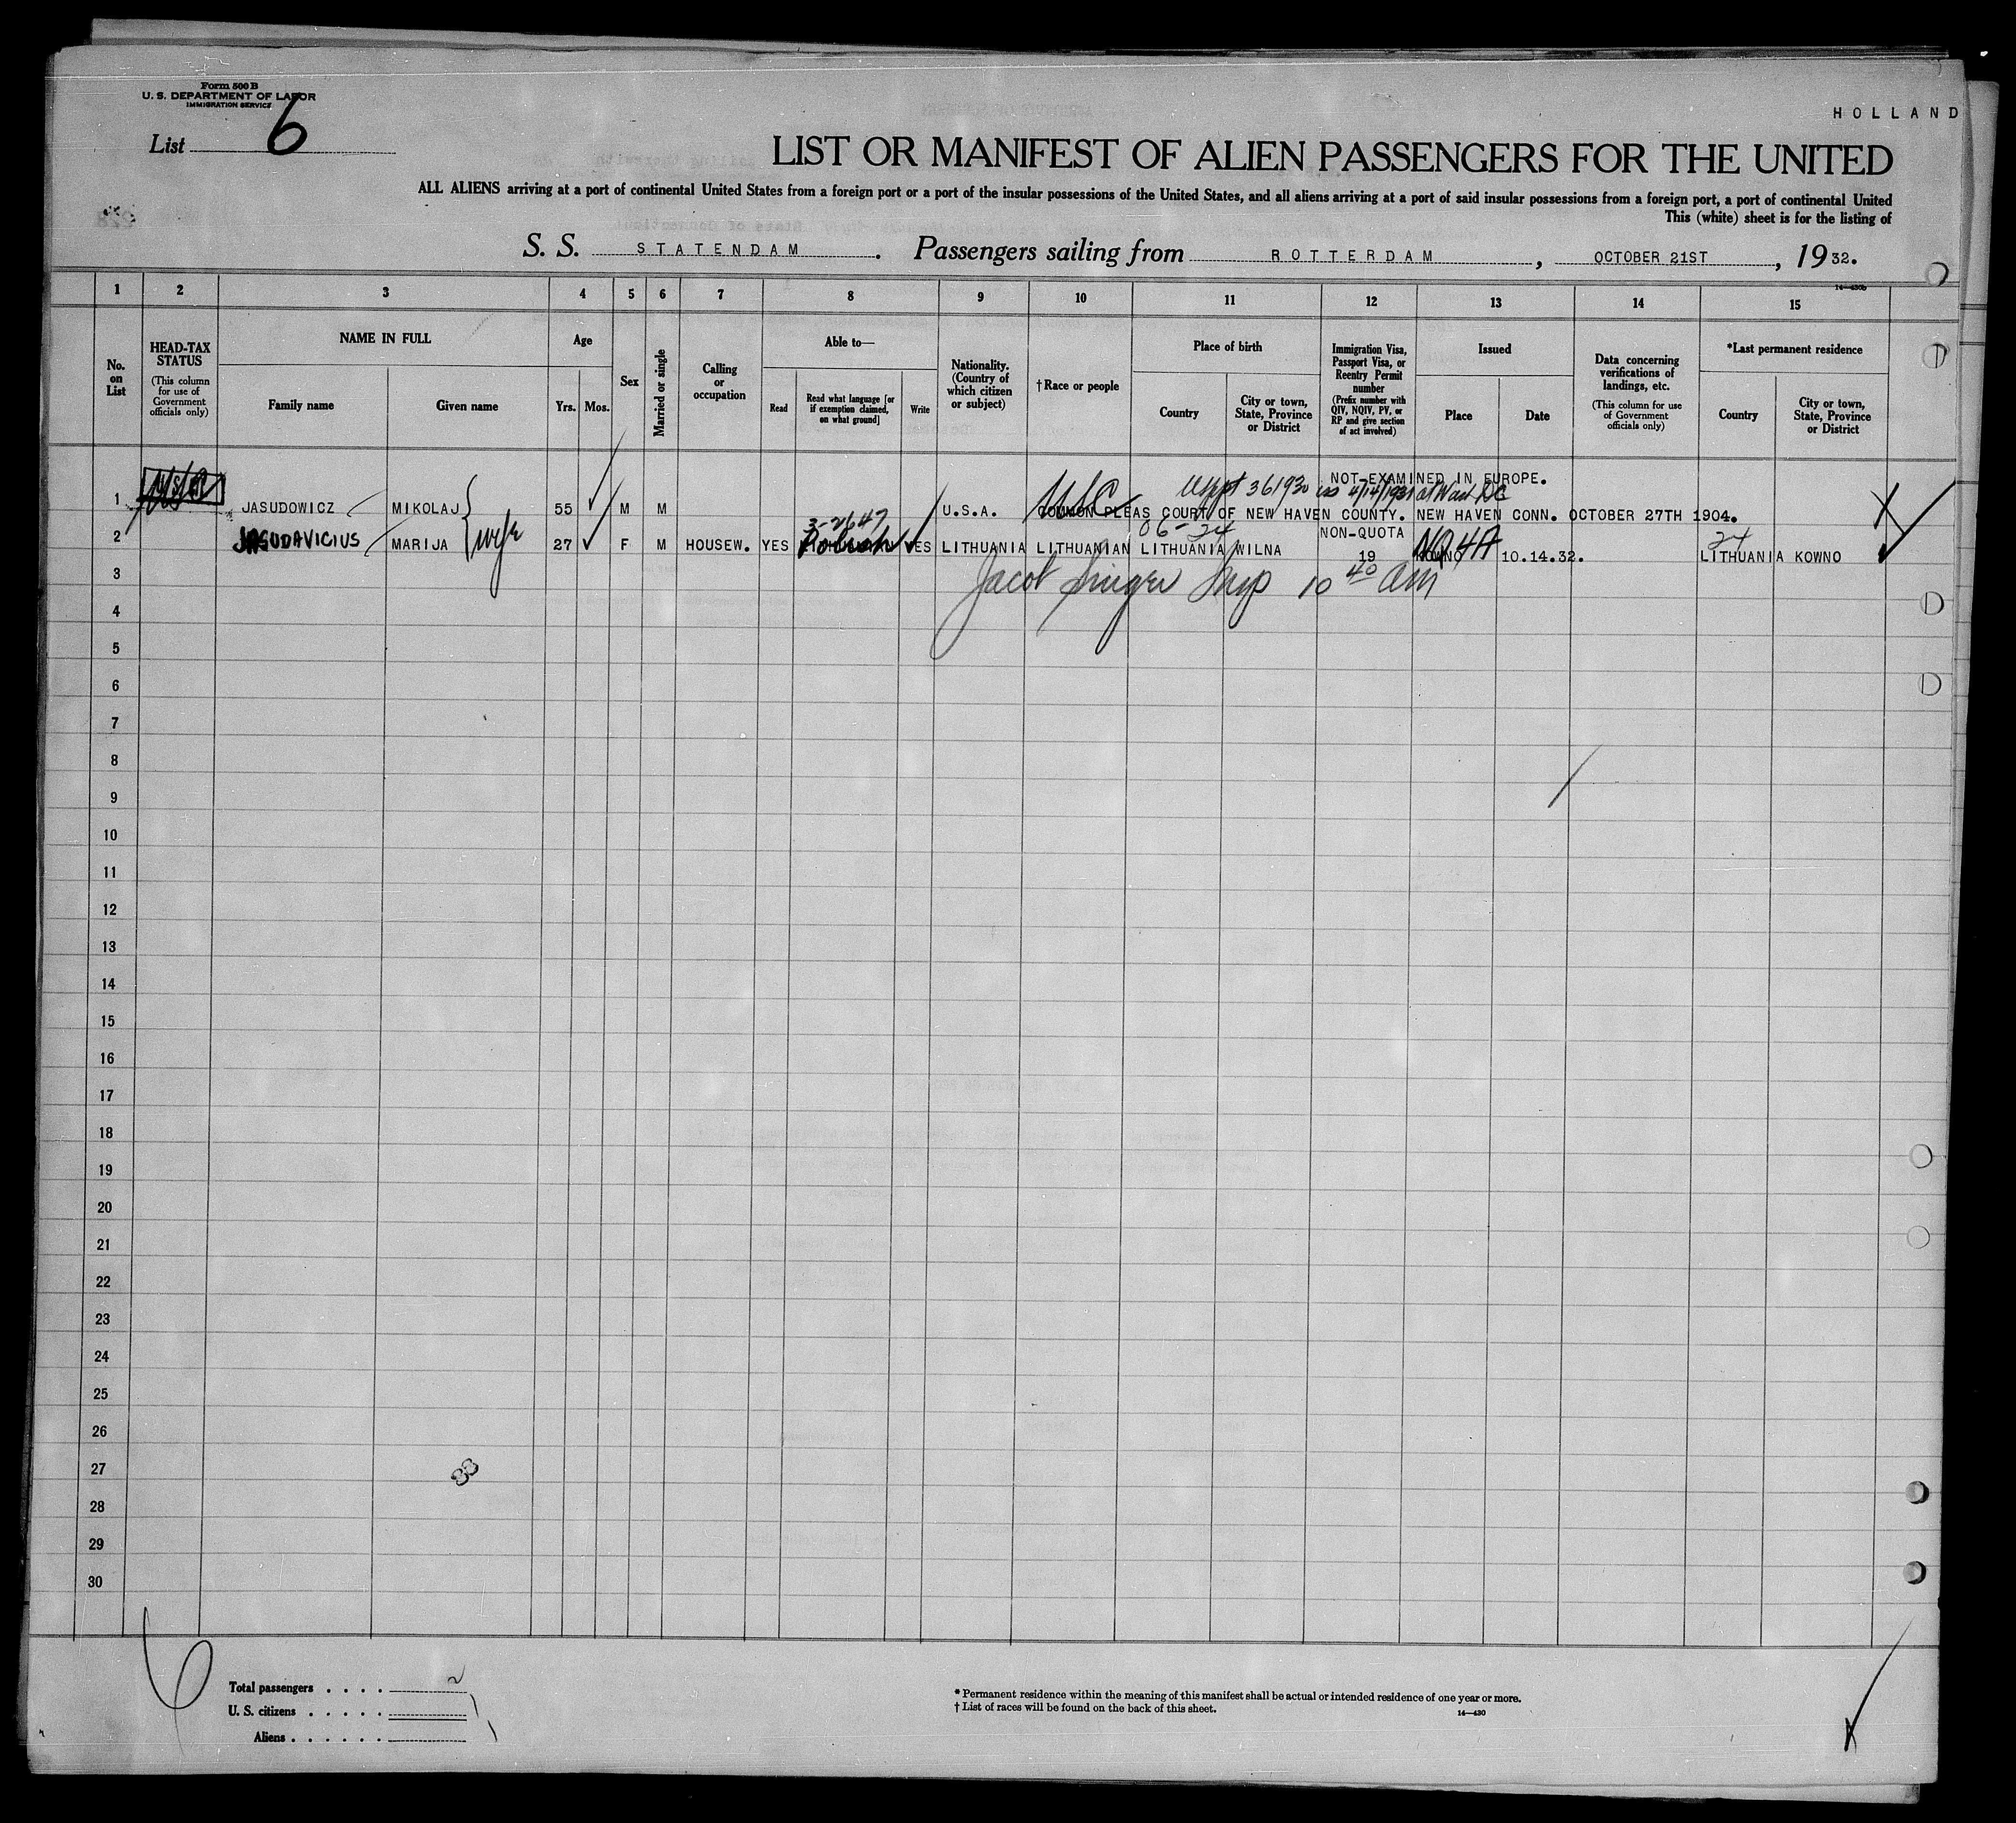 Form 500 B
U. S. DEPARTMENT OF LABOR
IMMIGRATION SERVICE
HOLLAND
List 6
LIST OR MANIFEST OF ALIEN PASSENGERS FOR THE UNITED
ALL ALIENS arriving at a port of continental United States from a foreign port or a port of the insular possessions of the United States, and all aliens arriving at a port of said insular possessions from a foreign port, a port of continental United
This (white) sheet is for the listing of
S. S. STATENDAM. Passengers sailing from ROTTERDAM, OCTOBER 21ST, 1932.
14—430b
1 2 3 4 5 6 7 8 9 10 11 12 13 14 15
No. on List
HEAD-TAX STATUS
(This column for use of Government officials only)
NAME IN FULL
Family name
Given name
Age
Yrs. Mos.
Sex
Married or single
Calling or occupation
Able to—
Read
Read what language [or if exemption claimed, on what ground]
Write
Nationality. (Country of which citizen or subject)
†Race or people
Place of birth
Country
City or town, State, Province or District
Immigration Visa, Passport Visa, or Reentry Permit number
(Prefix number with QIV, NQIV, PV, or RP and give section of act involved)
Issued
Place
Date
Data concerning verifications of landings, etc.
(This column for use of Government officials only)
*Last permanent residence
Country
City or town, State, Province or District
NOT EXAMINED IN EUROPE.
USppt 361930 iss 4/14/1931 at Wash DC
1 JASUDOWICZ MIKOLAJ 55 M M U.S.A. USC COMMON PLEAS COURT OF NEW HAVEN COUNTY. NEW HAVEN CONN. OCTOBER 27TH 1904.
3-2647 06-24 NON-QUOTA 24
2 JASUDAVICIUS MARIJA wife 27 F M HOUSEW. YES Polish YES LITHUANIA LITHUANIAN LITHUANIA WILNA 19 KOWNO NQ 4A 10.14.32. LITHUANIA KOWNO
3 Jacob Singer Insp 10 40 am
4
5
6
7
8
9
10
11
12
13
14
15
16
17
18
19
20
21
22
23
24
25
26
27
28
29
30
33
6
Total passengers . . . . 2
U. S. citizens . . . . .
Aliens . . . . . .
* Permanent residence within the meaning of this manifest shall be actual or intended residence of one year or more.
† List of races will be found on the back of this sheet.
14—430